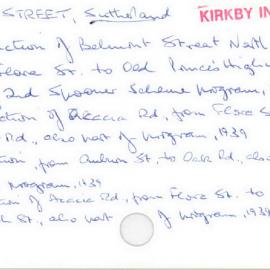 STREET, Sutherland
KIRKBY IN
ction of Belmont Street North
Flora St. to Old Princes High
2nd Spooner Scheme program,
ction of Acacia Rd, from Flora S
Rd., also part of program, 1939
tion, from Auburn St, to Oak Rd., also
program, 1939
on of Acacia Rd., from Flora St. to
St., also part of program, 1939